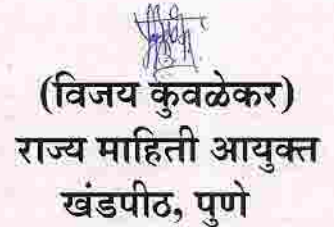 (विजय कुवळेकर)
राज्य माहिती आयुक्त
खंडपीठ, पुणे